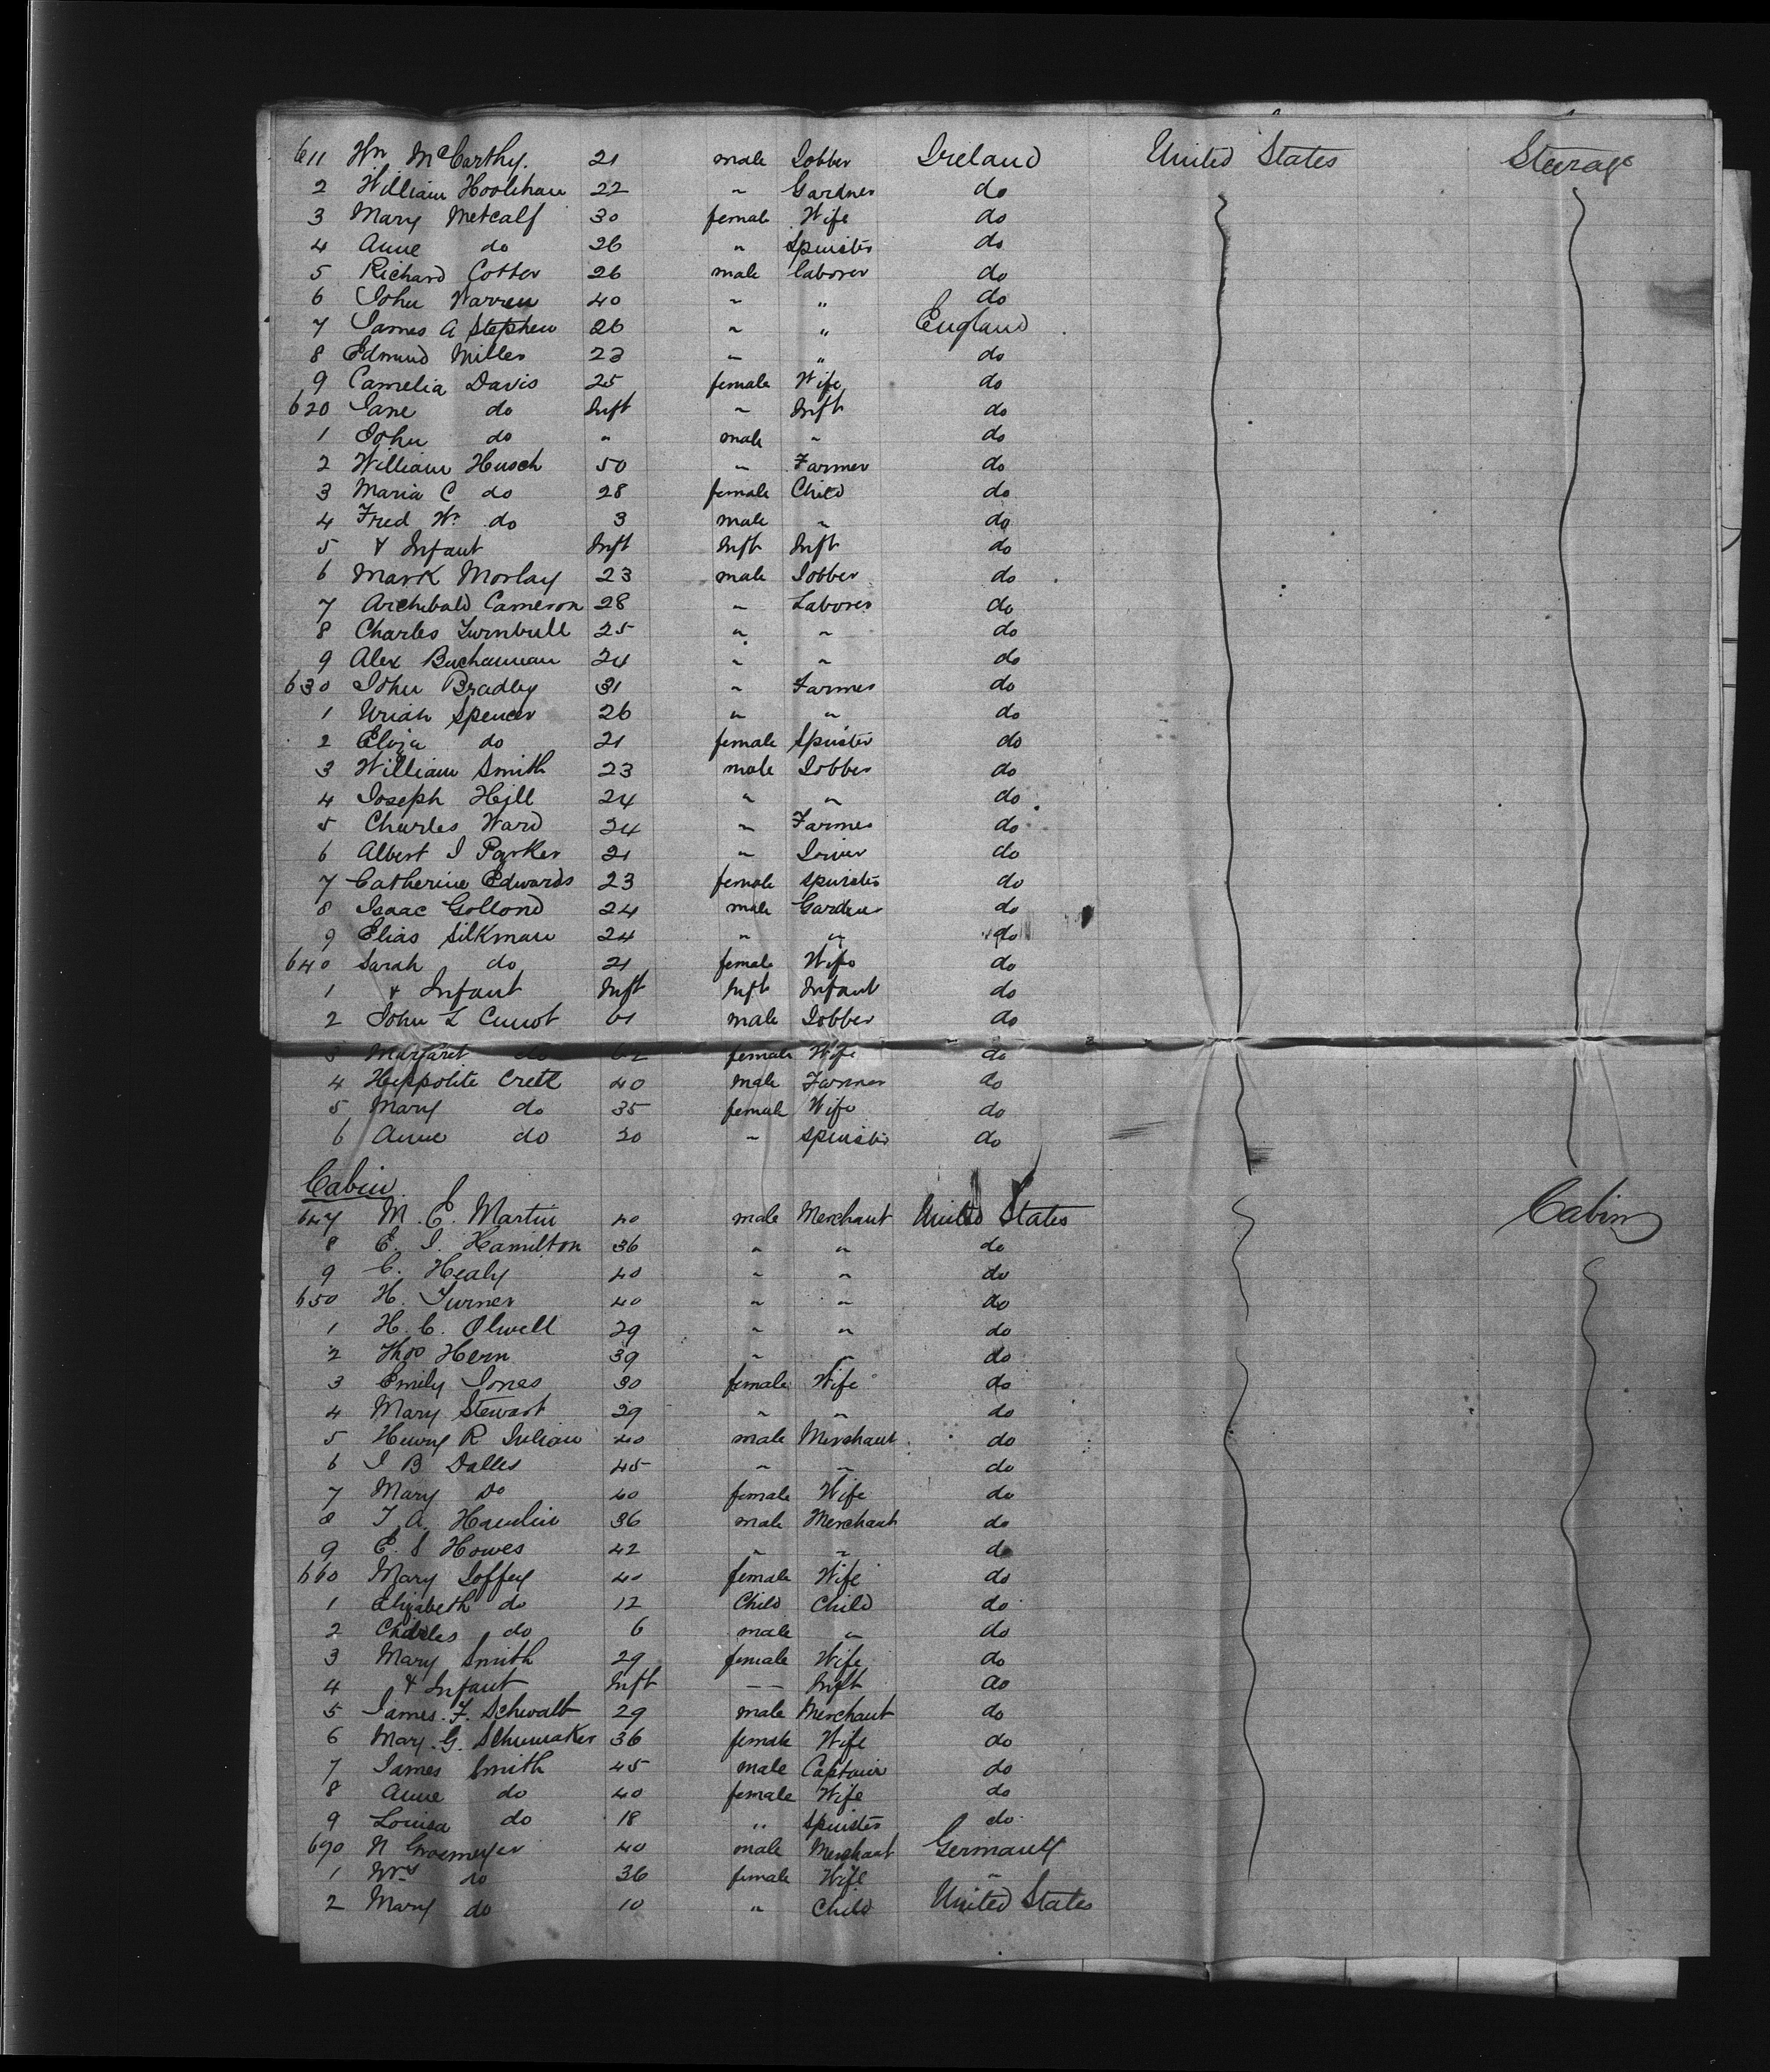 611 Wm McCarthy. 21 male Jobber Ireland United States Steerage
2 William Hoolihan 22 " Gardner do
3 Mary Metcalf 30 female Wife do
4 Anne do 26 " Spinster do
5 Richard Cotter 26 male laborer do
6 John Warren 40 " " do
7 James A Stephen 26 " " England
8 Edmund Miller 23 " " do
9 Camelia Davis 25 female Wife do
620 Jane do Inft " Inft do
1 John do " male " do
2 William Husch 50 " Farmer do
3 Maria C do 28 female Child do
4 Fred W. do 3 male " do
5 & Infant Inft Inft Inft do
6 Mark Morlay 23 male Jobber do
7 Archibald Cameron 28 " Laborer do
8 Charles Turnbull 25 " " do
9 Alex Buchannan 24 " " do
630 John Bradley 31 " Farmer do
1 Uriah Spencer 26 " " do
2 Eliza do 21 female Spinster do
3 William Smith 23 male Jobber do
4 Joseph Hill 24 " " do
5 Charles Ward 24 " Farmer do
6 Albert J Parker 21 " do
7 Catherine Edwards 23 female Spinster do
8 Isaac Gollond 24 male Gardner do
9 Elias Silkman 24 " " do
640 Sarah do 21 female Wife do
1 & Infant Inft Inft Infant do
2 John L 61 male Jobber do
3 Margaret do 62 female Wife do
4 Hippolite Crett 40 male Farmer do
5 Mary do 35 female Wife do
6 Anne do 20 " Spinster do
Cabin
647 M. E. Martin 40 male Merchant United States Cabin
8 E. J. Hamilton 36 " " do
9 C. Healy 40 " " do
650 H. Turner 40 " " do
1 H. C. Olwell 29 " " do
2 Thos Hern 39 " " do
3 Emily Jones 30 female Wife do
4 Mary Stewart 29 " " do
5 Henry R Julian 40 male Merchant do
6 J B Dalles 45 " " do
7 Mary Do 40 female Wife do
8 T. A. Hamlin 36 male Merchant do
9 E. S Howes 42 " " do
660 Mary Joffey 40 female Wife do
1 Elizabeth do 12 Child Child do
2 Charles do 6 male " do
3 Mary Smith 29 female Wife do
4 & Infant Inft — Inft do
5 James. F. Schwalt 29 male Merchant do
6 Mary. G. Schumaker 36 female Wife do
7 James Smith 45 male Captain do
8 Anne do 40 female Wife do
9 Louisa do 18 " Spinster do
670 N Groemeyer 40 male Merchant Germany
1 Mrs do 36 female Wife "
2 Mary do 10 " Child United States